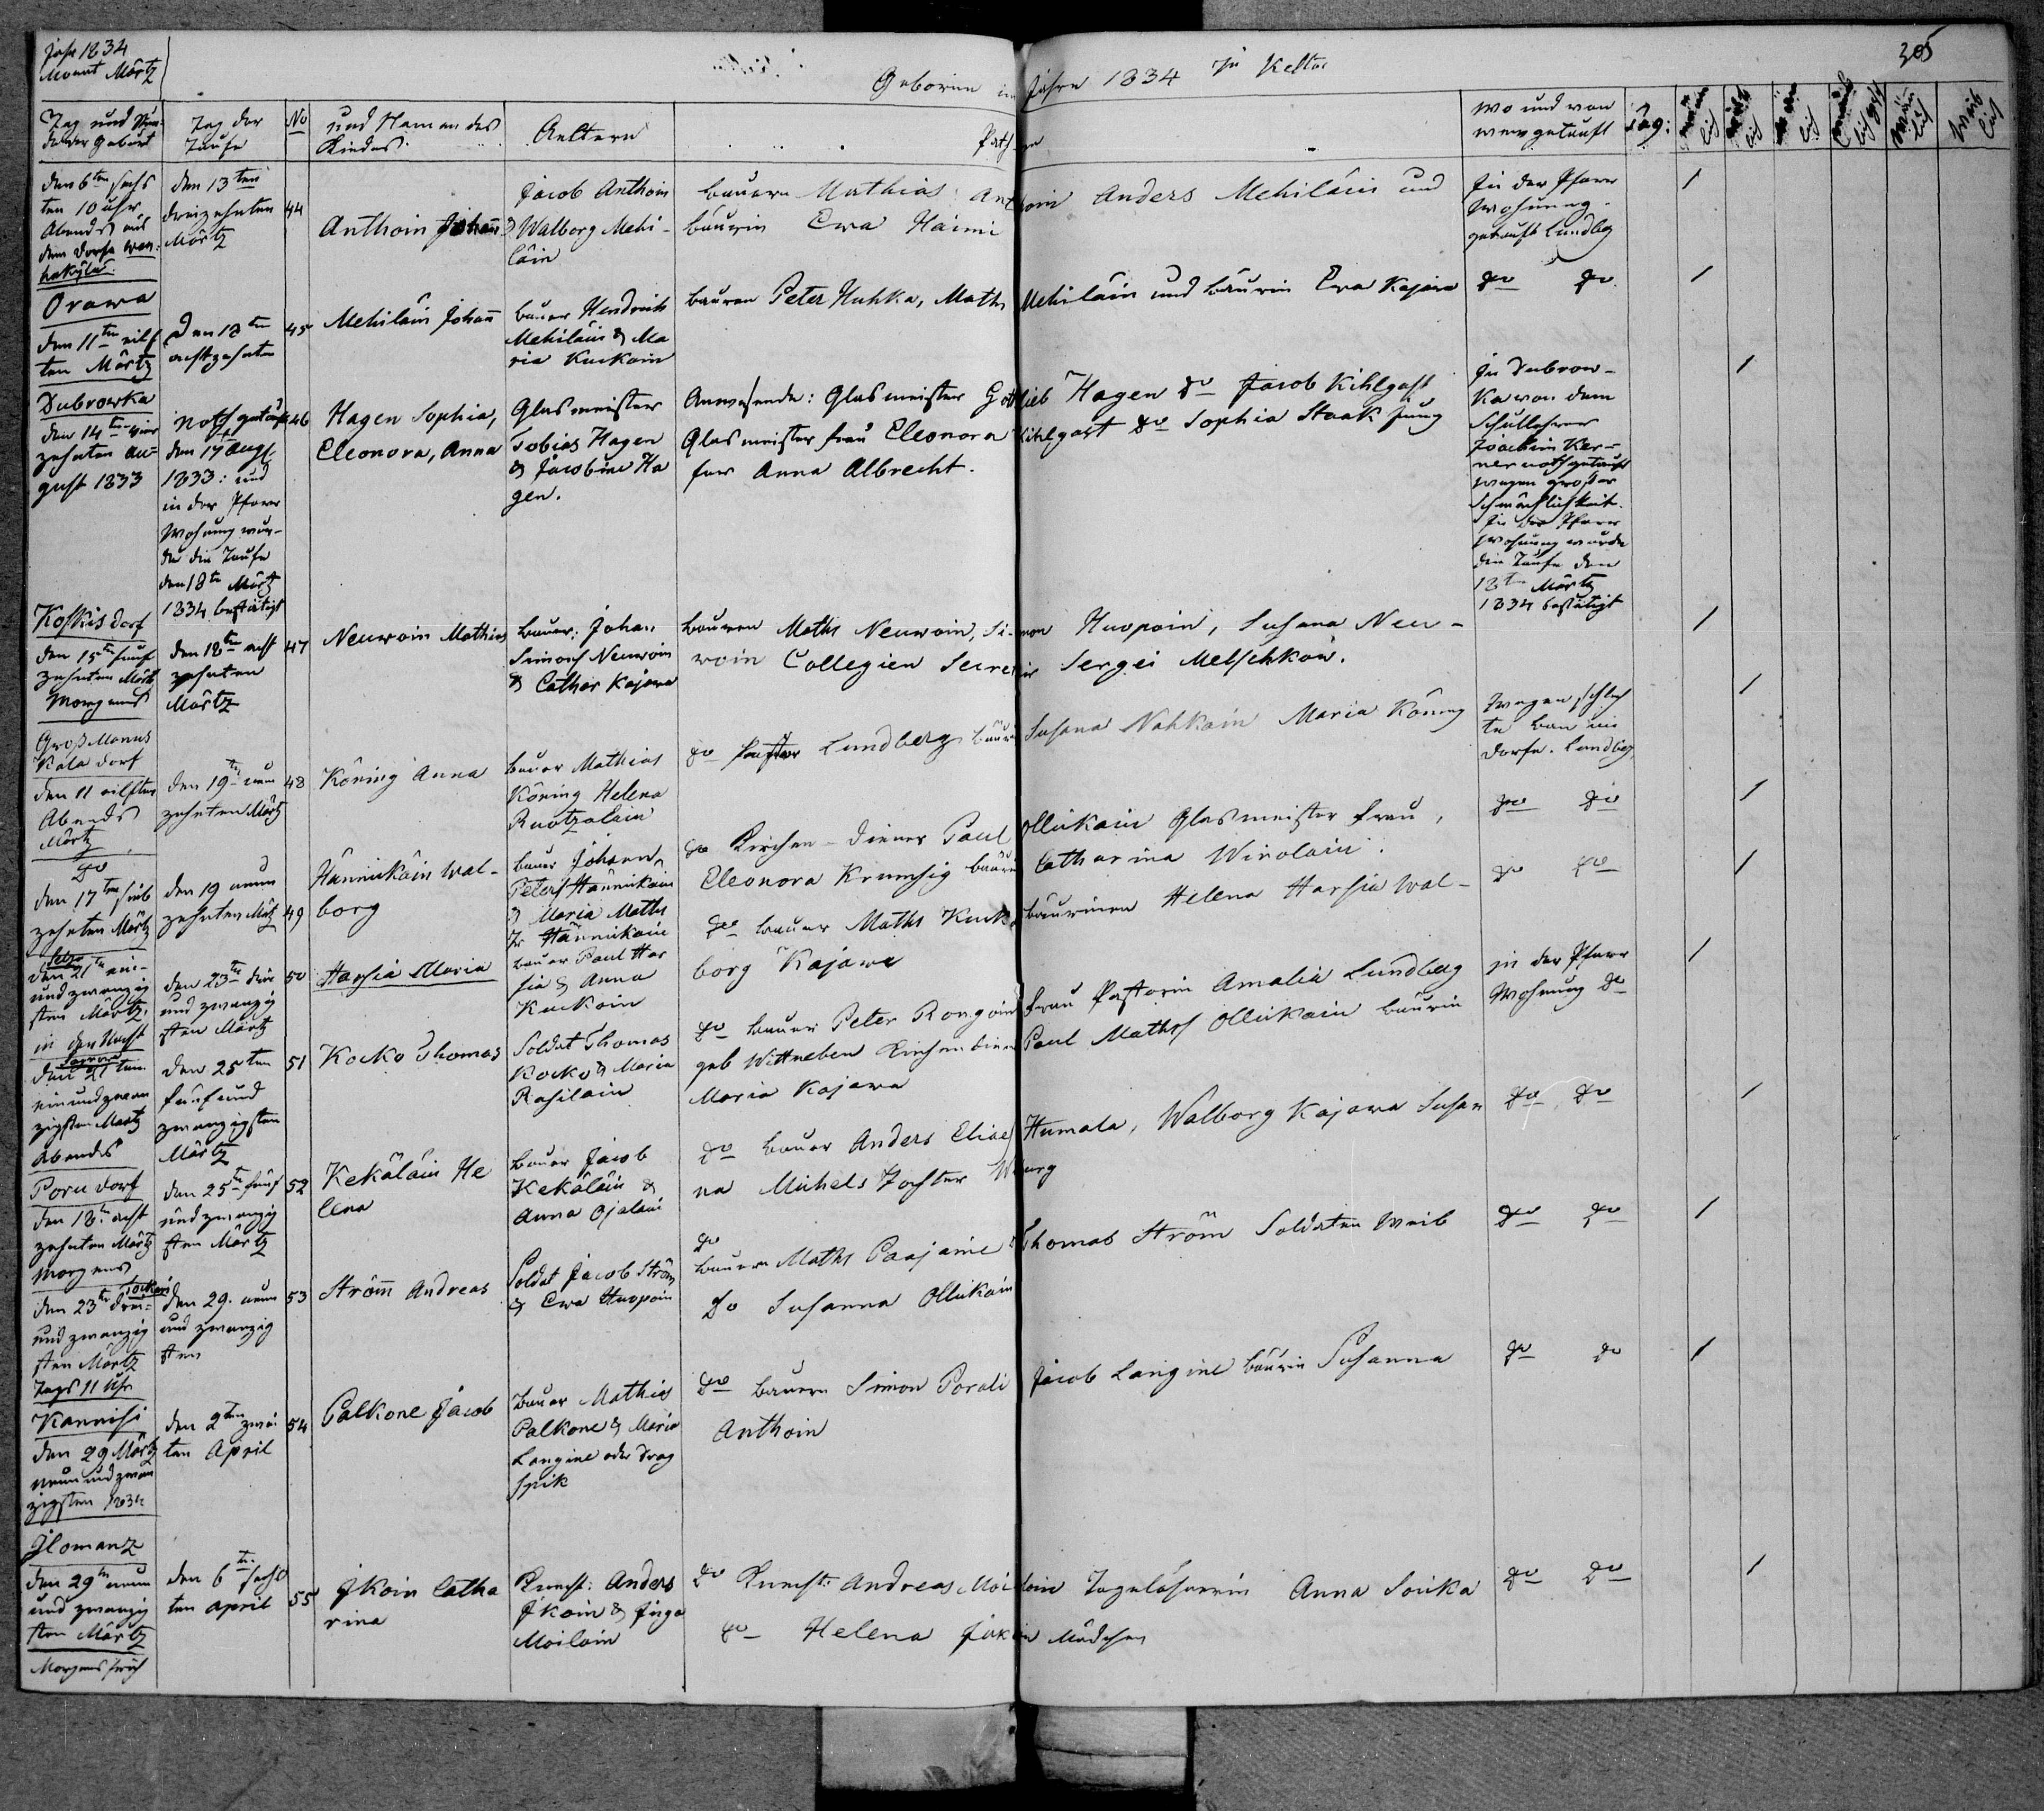 Jahr 1834
Monat Märtz
305
Geboren im Jahre 1834 in Keltos
Tag und Stun-
de der Geburt
Tag der
Taufe
No
und Namen des
Kindes.
Aeltern
Pathen
wo und von
wem getauft
den 6ten sechs
ten 10 uhr
Abends aus
dem Dorfe
den 13ten
dreizehnten
Märtz
44
Anthoin Johann
Jacob Anthoin
& Walborg Mehi-
läin
Bauern Mathias Anthoin Anders Mehiläin und
Bäurin Ewa Haimi
In der Pfarr
Wohnung
getauft Lundbg
1
Orawa
den 11ten eilf
ten Märtz
Den 18ten
achtzehnten
45
Mehiläin Johann
bauer Hendrich
Mehiläin & Ma
ria Kuckoin
bauern Peter Huhka, Maths Mehiläin und bäurin Ewa Kajawa
do do
1
Dubrowka
den 14ten vier
zehnten Au-
gust 1833
Noth getauft
den 17 Augt.
1833: und
in der Pfarr
Wohnung wur-
de die Taufe
den 18ten Märtz
1834 bestätigt
46
Hagen Sophia,
Eleonora, Anna
Glasmeister
Tobias Hagen
& Jacobine Ha
gen.
Anwesende: Glasmeister Gottlieb Hagen do Jacob Kihlgast
Glasmeister frau Eleonora Kihlgast do Sophia Staak Jung
fer Anna Albrecht.
In Dubrow-
ka von dem
Schullehrer
Joachim Ker-
ner nothgetauft
wegen großer
Schwächlichkeit.
In der Pfarr
Wohnung wurde
die Taufe den
18ten Märtz
1834 bestätigt
1
Koskis dorf
den 15ten fünf
zehnten Märtz
Morgens
den 18ten acht
zehnten
Märtz
47
Neuwoin Mathias
bauer: Johan
Simosch Neuwoin
& Cathar Kajawa
bauern Maths Neuwoin, Simon Huopoin, Susana Neu-
woin Collegien Secretair Sergei Metschkow.
1
Groß Manus
Kala dorf
den 11 eilften
Abends
Märtz
den 19ten neun
zehnten Märtz
48
Köning Anna
bauer Mathias
Köning Helena
Ruotzalain
do Pastor Lundberg bäurin Susana Nahkain Maria Köning
Wegen schlech
te
Dorfe. Lundbg
1
do
den 17ten sieb
zehnten Märtz
den 19 neun
zehnten Märtz
49
Hännikäin Wal-
borg
bauer Johann
Peters Hännikäin
& Maria Maths
Tr Hännikäin
do Kirchen-diener Paul Ollukain Glasmeister frau,
Eleonora Krumsig bäurin Catharina Wirolain.
do do
1
den 21ten ein-
und zwanzig
sten Märtz.
in der Nacht
den 23ten drei
und zwanzig
sten Märtz
50
Harsia Maria
bauer Paul Har
sia & Anna
Kuckoin
do bauer Maths Kuck bäurinen Helena Harsia Wal-
borg Kajawa
do do
1
den 21ten
einundzwan
zigsten Märtz
Abends
den 25ten
fünfund
zwanzigsten
Märtz
51
Kocko Thomas
Soldat Thomas
Kocko & Maria
Rasilain
do bauer Peter Rongoin frau Pastorin Amalia Lundberg
geb Wittneben Kirchendiener Paul Maths Ollukain bäurin
Maria Kajawa
in der Pfarr
Wohnung do
1
Poru dorf
den 18ten acht
zehnten Märtz
Morgens
den 25ten fünf
und zwanzig
sten Märtz
52
Kekäläin He
lena
bauer Jacob
Kekäläin &
Anna Ojalain
do bauer Anders Elias Humala, Walborg Kajawa Susan
na Michels Tochter
do do
1
den 23ten drei-
und zwanzig
sten Märtz
Tags 11 uhr
den 29. neun
und zwanzig
sten
53
Ström Andreas
Soldat Jacob Ström
& Ewa Huopoin
do
bauern Maths Paajaine Thomas Ström Soldaten Weib
do Susanna Ollukain
do do
1
Kannisi
den 29 Märtz
neunundzwan
zigsten 1834
den 2ten zwei
ten April
54
Palkone Jacob
bauer Mathias
Palkone & Maria
Langine oder Drag
spik
do bauern Simon Porali Jacob Langine bäurin Susanna
Anthoin
do do
1
Ilomanz
den 29ten neun
und zwanzig
sten Märtz
Morgens früh
den 6ten sechs
ten April
55
Ikoin Catha
rina
Knecht: Anders
Ikoin & Inga
Moiloin
do Knecht: Andreas Moiloin Tagelöhnerin Anna Souka
do Helena Mädchen
do do
1